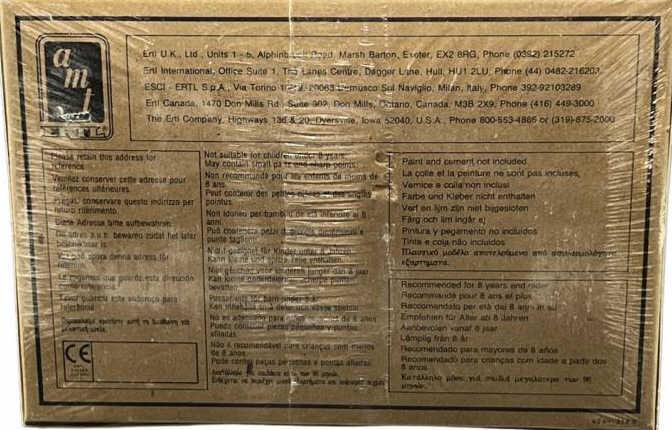 amt
ERTL
Ertl U.K., Ltd., Units 1 - 5, Alphinbrook Road, Marsh Barton, Exeter, EX2 8RG, Phone (0392) 215272
Ertl International, Office Suite 1, The Lanes Centre, Dagger Lane, Hull, HU1 2LU, Phone (44) 0482-216203
ESCI - ERTL S.p.A., Via Torino 20063 Cernusco Sul Naviglio, Milan, Italy, Phone 392-92103289
Ertl Canada, 1470 Don Mills Rd., Suite 302, Don Mills, Ontario, Canada, M3B 2X9, Phone (416) 449-3000
The Ertl Company, Highways 136 & 20, Dyersville, Iowa 52040, U.S.A., Phone 800-553-4886 or (319)-875-2000
Please retain this address for
reference.
Veuillez conserver cette adresse pour
références ultérieures.
Pregasi conservare questo indirizzo per
futuro riferimento.
Bitte Adresse bitte aufbewahren.
Dit adres a.u.b. bewaren zodat het later
Var god spara denna adress för
Le rogamos que guarde esta dirección
Favor guardar este endereço para
Not suitable for children under 8 years.
May contain small parts and sharp points.
Non recommandé pour les enfants de moins de
8 ans.
Peut contenir des petites pièces et des angles
pointus.
Non idoneo per bambini di età inferiore ai 8
anni.
Può contenere pezzi di piccole dimensioni e
punte taglienti.
Nicht geeignet für Kinder unter 8 Jahren.
Kann kleine und spitze Teile enthalten.
Niet geschikt voor kinderen jonger dan 8 jaar
Kan kleine onderdelen en scherpe punten
bevatten.
No es adecuado para niños menores de 8 años
Puede contener piezas pequeñas y puntas
afiladas.
Não é recomendável para crianças com menos
de 8 anos.
Pode conter peças pequenas e pontas afiadas.
Paint and cement not included
La colle et la peinture ne sont pas incluses,
Vernice e colla non inclusi
Farbe und Kleber nicht enthalten
Verf en lijm zijn niet bijgesloten
Färg och lim ingår ej
Pintura y pegamento no incluidos
Tinta e cola não incluidos
Πλαστικό μοδέλο αποτελούμενο από συναρμολογούμενα
εξαρτήματα.
Recommended for 8 years and older
Recommandé pour 8 ans et plus
Raccomandato per età dai 8 anni in su
Empfohlen für Alter ab 8 Jahren
Aanbevolen vanaf 8 jaar
Lämplig från 8 år
Recomendado para mayores de 8 años
Recomendado para crianças com idade a partir dos
8 anos.
Κατάλληλο μόνο για παιδιά μεγαλύτερα των 96
μηνών.
CE